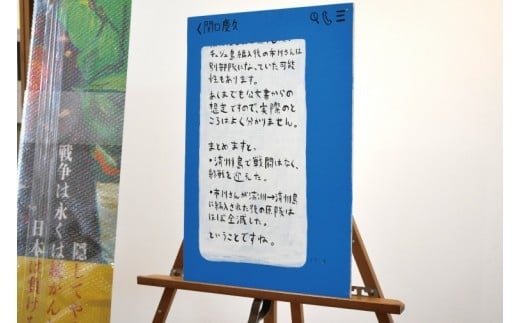 く関口慶久
チェジュ島編入後の市川さんは
別部隊になっていた可能
性もあります。
あくまでも公文書からの
想定ですので、実際のと
ころはよく分かりません。
まとめますと、
・済州島で戦闘はなく、
終戦を迎えた。
・市川さんが満州→済州島
に編入された後の原隊は
ほぼ全滅した。
ということですね。
隠してや
戦争は永くは続かん
日本は負ける